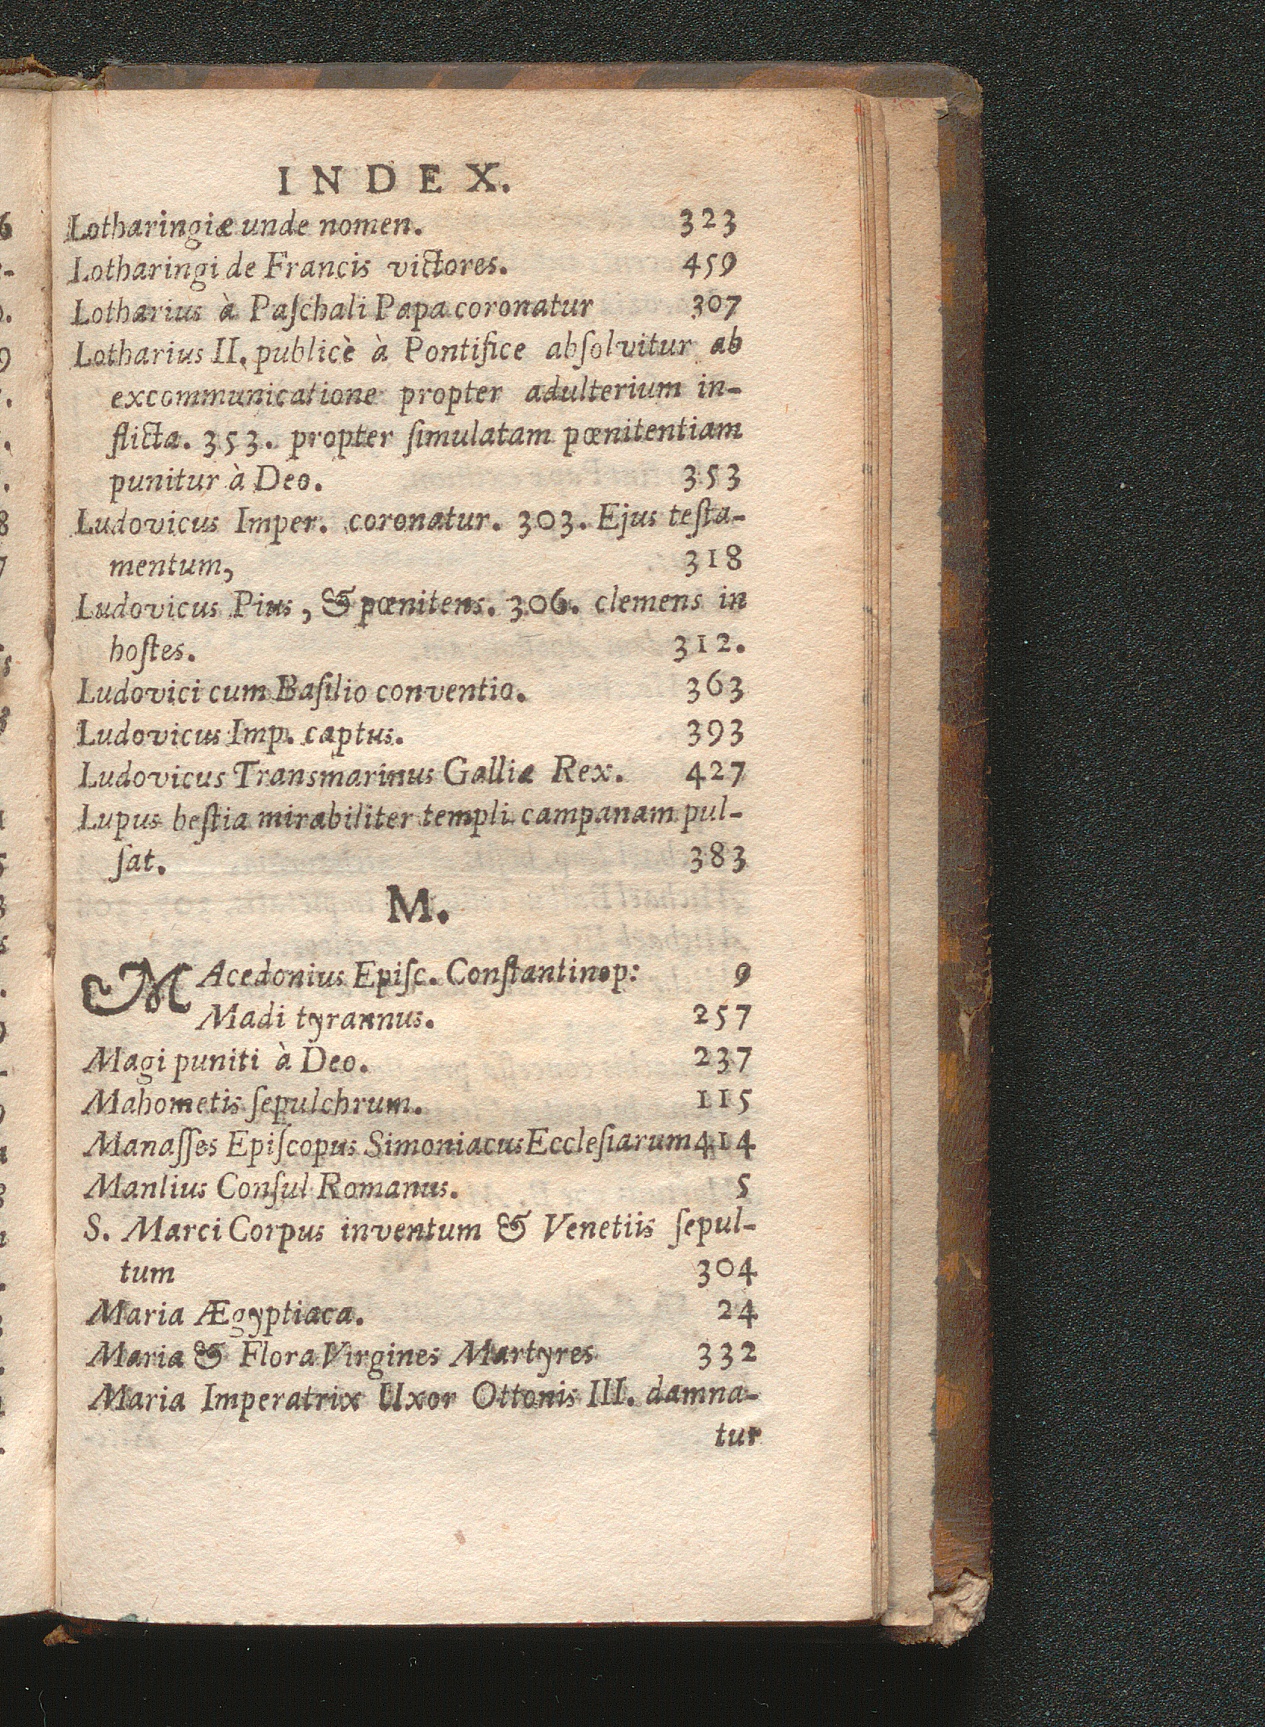 INDEX.
Lotharingiæ unde nomen. 323
Lotharingi de Francis victores. 459
Lotharius à Paſchali Papa coronatur 307
Lotharius II. publicè à Pontifice abſolvitur ab
excommunicatione propter adulterium in-
flicta. 353. propter ſimulatam pœnitentiam
punitur à Deo. 353
Ludovicus Imper. coronatur. 303. Ejus teſta-
mentum, 318
Ludovicus Pius, & pœnitens. 306. clemens in
hoſtes. 312.
Ludovici cum Baſilio conventio. 363
Ludovicus Imp. captus. 393
Ludovicus Transmarinus Galliæ Rex. 427
Lupus beſtia mirabiliter templi campanam pul-
ſat. 383
M.
MAcedonius Epiſc. Conſtantinop: 9
Madi tyrannus. 257
Magi puniti à Deo. 237
Mahometis ſepulchrum. 115
Manaſſes Epiſcopus Simoniacus Eccleſiarum 414
Manlius Conſul Romanus. 5
S. Marci Corpus inventum & Venetiis ſepul-
tum 304
Maria Ægyptiaca. 24
Maria & Flora Virgines Martyres 332
Maria Imperatrix Uxor Ottonis III. damna-
tur